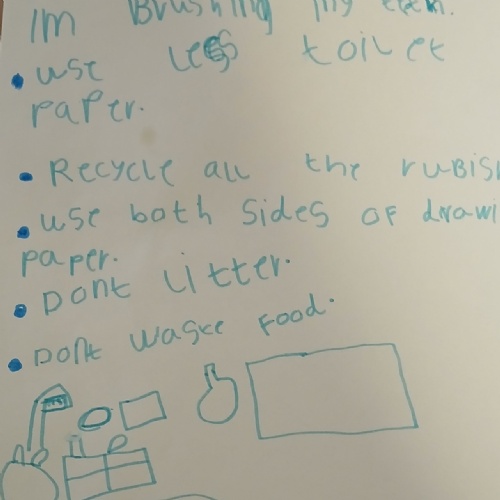 Im Brushing my
• use less toilet
paper.
• Recycle all the rubish
• use both sides of drawi
paper.
• Dont litter.
• Dont waste food.